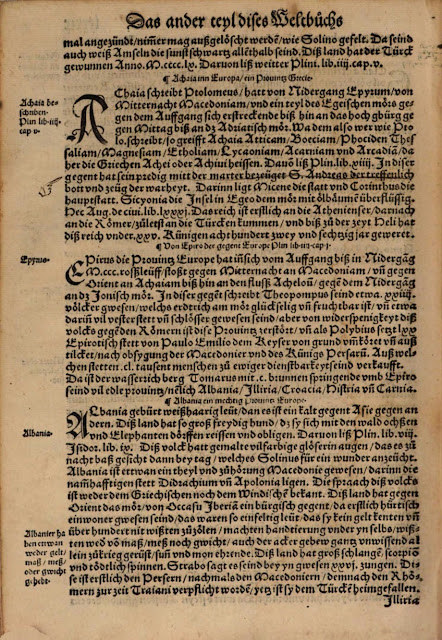 Das ander teyl dises Weltbůchs
mal angezündt/nim̃er mag außgelöscht werdẽ/wie Solino gefelt. Da seind
auch weiß Amseln die sunst schwartz allẽthalb seind. Diß land hat der Türck
gewunnen Anno. M.cccc.lx. Daruon liß weitter Plin. lib. iiij. cap. v.
¶ Achaia inn Europa/ein Prouintz Grecie.
Achaia be-
schribẽ.
Plin lib. iiij.
cap v.
AChaia schreibt Ptolomeus/hatt von Nidergang Epyrum/von
Mitternacht Macedoniam/vnd ein teyl des Egeischen mörs ge-
gen dem Auffgang sich erstreckende biß hin an das hochgbürg ge
gen Mittag biß an dz Adriatisch mör. Wa dem also wer wie Pto
lo. schreibt/so greifft Achaia Atticam/Boeciam/Phociden Thes
saliam/Magnesiam/Etholiam/Lycaoniam/Acarniam vnd Arcadiã/da
her die Griechen Achei oder Achiui heissen. Dauõ liß Plin. lib. xiiij. In diser
gegent hat sein predig mitt der marter bezeüget S. Andreas der treffenlich
bott vnd zeüg der warheyt. Darinn ligt Micene die statt vnd Corinthus die
hauptstatt. Sicyonia die Insel in Egeo dem mör mit ölbäumẽ überflüssig.
Hec Aug. de ciui. lib. xviij. Das reich ist erstlich an die Athenienser/darnach
an die Römer/zůletst an die Türcken kummen/vnd biß zů der zeyt Heli hat
diß reich vnder xxv. Künigen achthundert zwey vnd sechtzig jar geweret.
¶ Von Epiro der gegent Europe Plin lib-iiij-cap j.
Epyrus.
EPirus die Prouintz Europe hat iñ sich vom Auffgang biß in Nidergãg
M.ccc. roßleüff/stoßt gegen Mitternacht an Macedoniam/vñ gegen
Orient an Achaiam biß hin an den flusß Acheloũ/gegẽ dem Nidergãg
an dz Jonisch mör. In diser gegent schreibt Theopompus seind etwa. xxiiij.
völcker gwesen/welchs erdtrich am mör glückselig vñ fruchtbar ist/vñ etwa
darum̃ vil vester stett vñ schlösser gewesen seind/aber von widerspenigkeyt diß
volcks gegẽ den Römern ist dise Prouintz zerstört/vñ als Polybius setzt lxx
Epirotisch stett von Paulo Emilio dem Keyser von grund vm̃körrt vñ auß
tilcket/nach obsygung der Macedonier vnd des Künigs Persarũ. Auß wel-
chen stetten .cl. tausent menschen zů ewiger dienstbarkeyt seind verkaufft.
Da ist der wasserich berg Tomarus mit .c. brunnen springende vmb Epiro
seind vil edle prouintz/nẽlich Albania/Illiria/Croacia/Histria vñ Carnia.
¶ Albania ein mechtig prouintz Europe.
Albania.
ALbania gebürt weißhaarig leüt/dan es ist ein kalt gegent Asie gegen an
dern. Diß land hat so groß freydig hund/dz sy sich mit den wald ochsẽn
vnd Elephanten dörffen reissen vnd obligen. Daruon liß Plin. lib. viij.
Isidor. lib. ix. Diß volck hatt gemalte vilfarbige gläserin augen/das es zů
nacht baß gesicht dann bey tag/welches Solinus für ein wunder anzeücht.
Albania ist ettwan ein theyl vnd zůhörung Macedonie gewesen/darinn die
namhafftigen stett Didrachium vñ Apolonia ligen. Die spraach diß volcks
ist weder dem Griechischen noch dem Windischẽ bekant. Diß land hat gegen
Orient das mör/von Occasu Iberiã ein bürgisch gegent/da erstlich hürtisch
einwoner gwesen seind/das waren so einfeltig leüt/das sy kein gelt kenten vñ
über hundert nit wißten zůzölen/machten handtierung vnder yn selbs/wiß-
ten wed võ maß/meß noch gwicht/auch der acker gebew gantz vnwissend al
lein zů krieg gerüst/sun vnd mon ehrende. Diß land hat groß schlangẽ/scorpiõ
vnd tödtlich spinnen. Strabo sagt es seind bey yn gwesen. xxvj. zungen. Di-
se ist erstlich den Persern/nachmals den Macedoniern/demnach den Rhö-
mern zur zeit Traiani verpflicht wordẽ/yetz ist sy dem Türckẽ heimgefallen.
Albanier ha
ben etwan
weder gelt/
maß/meß-
oder gwicht
gehebt-
Illiria